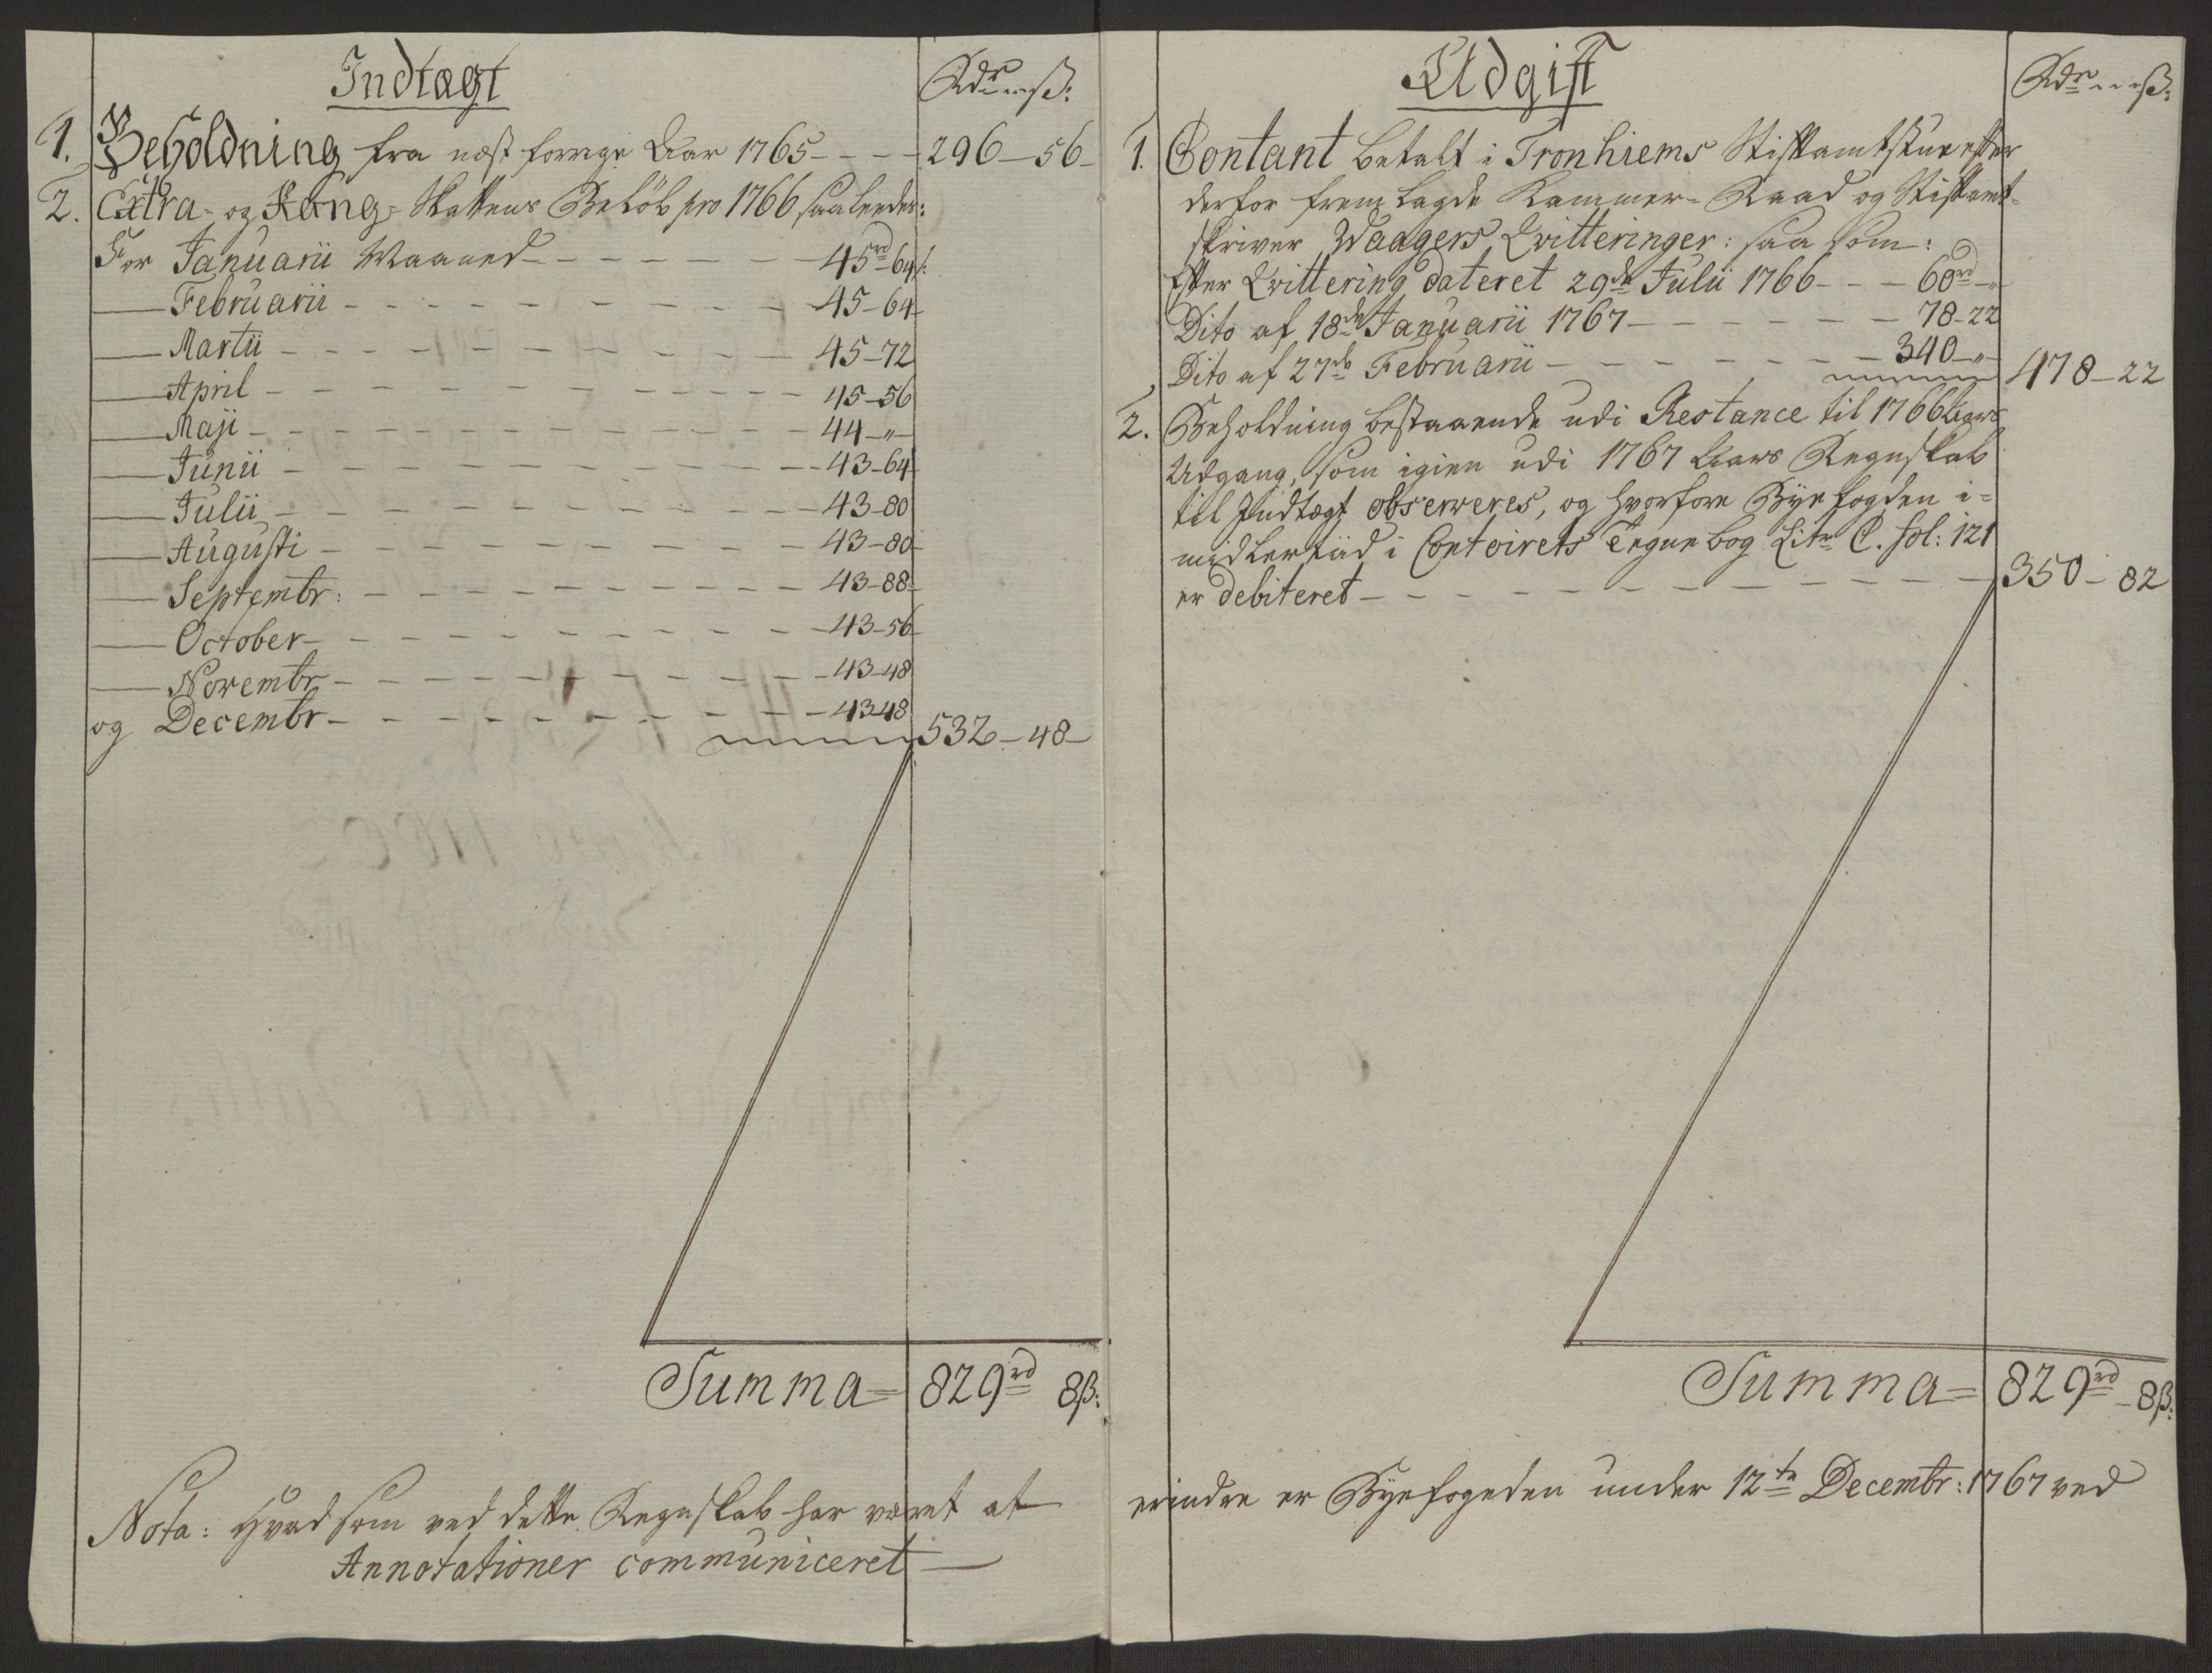 Indtægt
Rdr ß:
1. Beholdning fra næst forrige Aar 1765 - - - - 296 - 56 -
2. Extra- og Rang- Skattens Beløb pro 1766, saaleedes:
For Januarii Maaned - - - - - - 45rd 64ß:
— Februarii - - - - - - - - 45 - 64
— Martii - - - - - - - - 45 - 72
— April - - - - - - - - 45 - 56
— Maji - - - - - - - - 44 - " -
— Junii - - - - - - - - 43 - 64
— Julii - - - - - - - - 43 - 80
— Augusti - - - - - - - - 43 - 80
— Septembr: - - - - - - - - 43 - 88
— October - - - - - - - - 43 - 56
— Novembr - - - - - - - - 43 - 48
og Decembr - - - - - - - - 43 48
532 - 48 -
Summa = 829rd 8ß:
Nota: Hvad som ved dette Regnskab har været at
Annotationer communiceret —
Udgift
Rdr ß:
1. Contant betalt i Tronhiems Stiftamtstue efter
derfor fremlagde Kammer-Raad og Stiftamt-
skriver Waagers Qvitteringer: saa som:
Efter Qvittering dateret 29de Julii 1766 - - - 60rd - "
Dito af 18de Januarii 1767 - - - - - - - 78 - 22
Dito af 27de Februarii - - - - - - - 340 - " -
478 - 22
2. Beholdning bestaaende udi Restance til 1766 Aars
Udgang, som igien udi 1767 Aars Regnskab
til Indtægt observeres, og hvorfore Byefogden i-
midlertiid i Contoirets Tegnebog Litr C. fol: 121
er debiteret - - - - - - - - - 350 - 82
Summa = 829rd - 8ß:
erindre er Byefogeden under 12te Decembr: 1767 ved